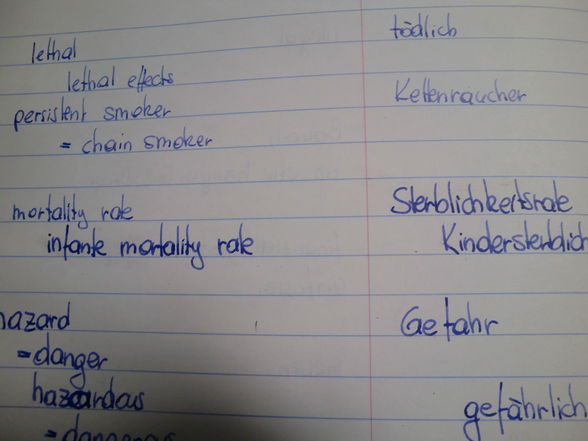 lethal
tödlich
lethal effects
persistent smoker
Kettenraucher
= chain smoker
mortality rate
Sterblichkeitsrate
infante mortality rate
Kindersterblich
hazard
Gefahr
= danger
hazardas
gefährlich